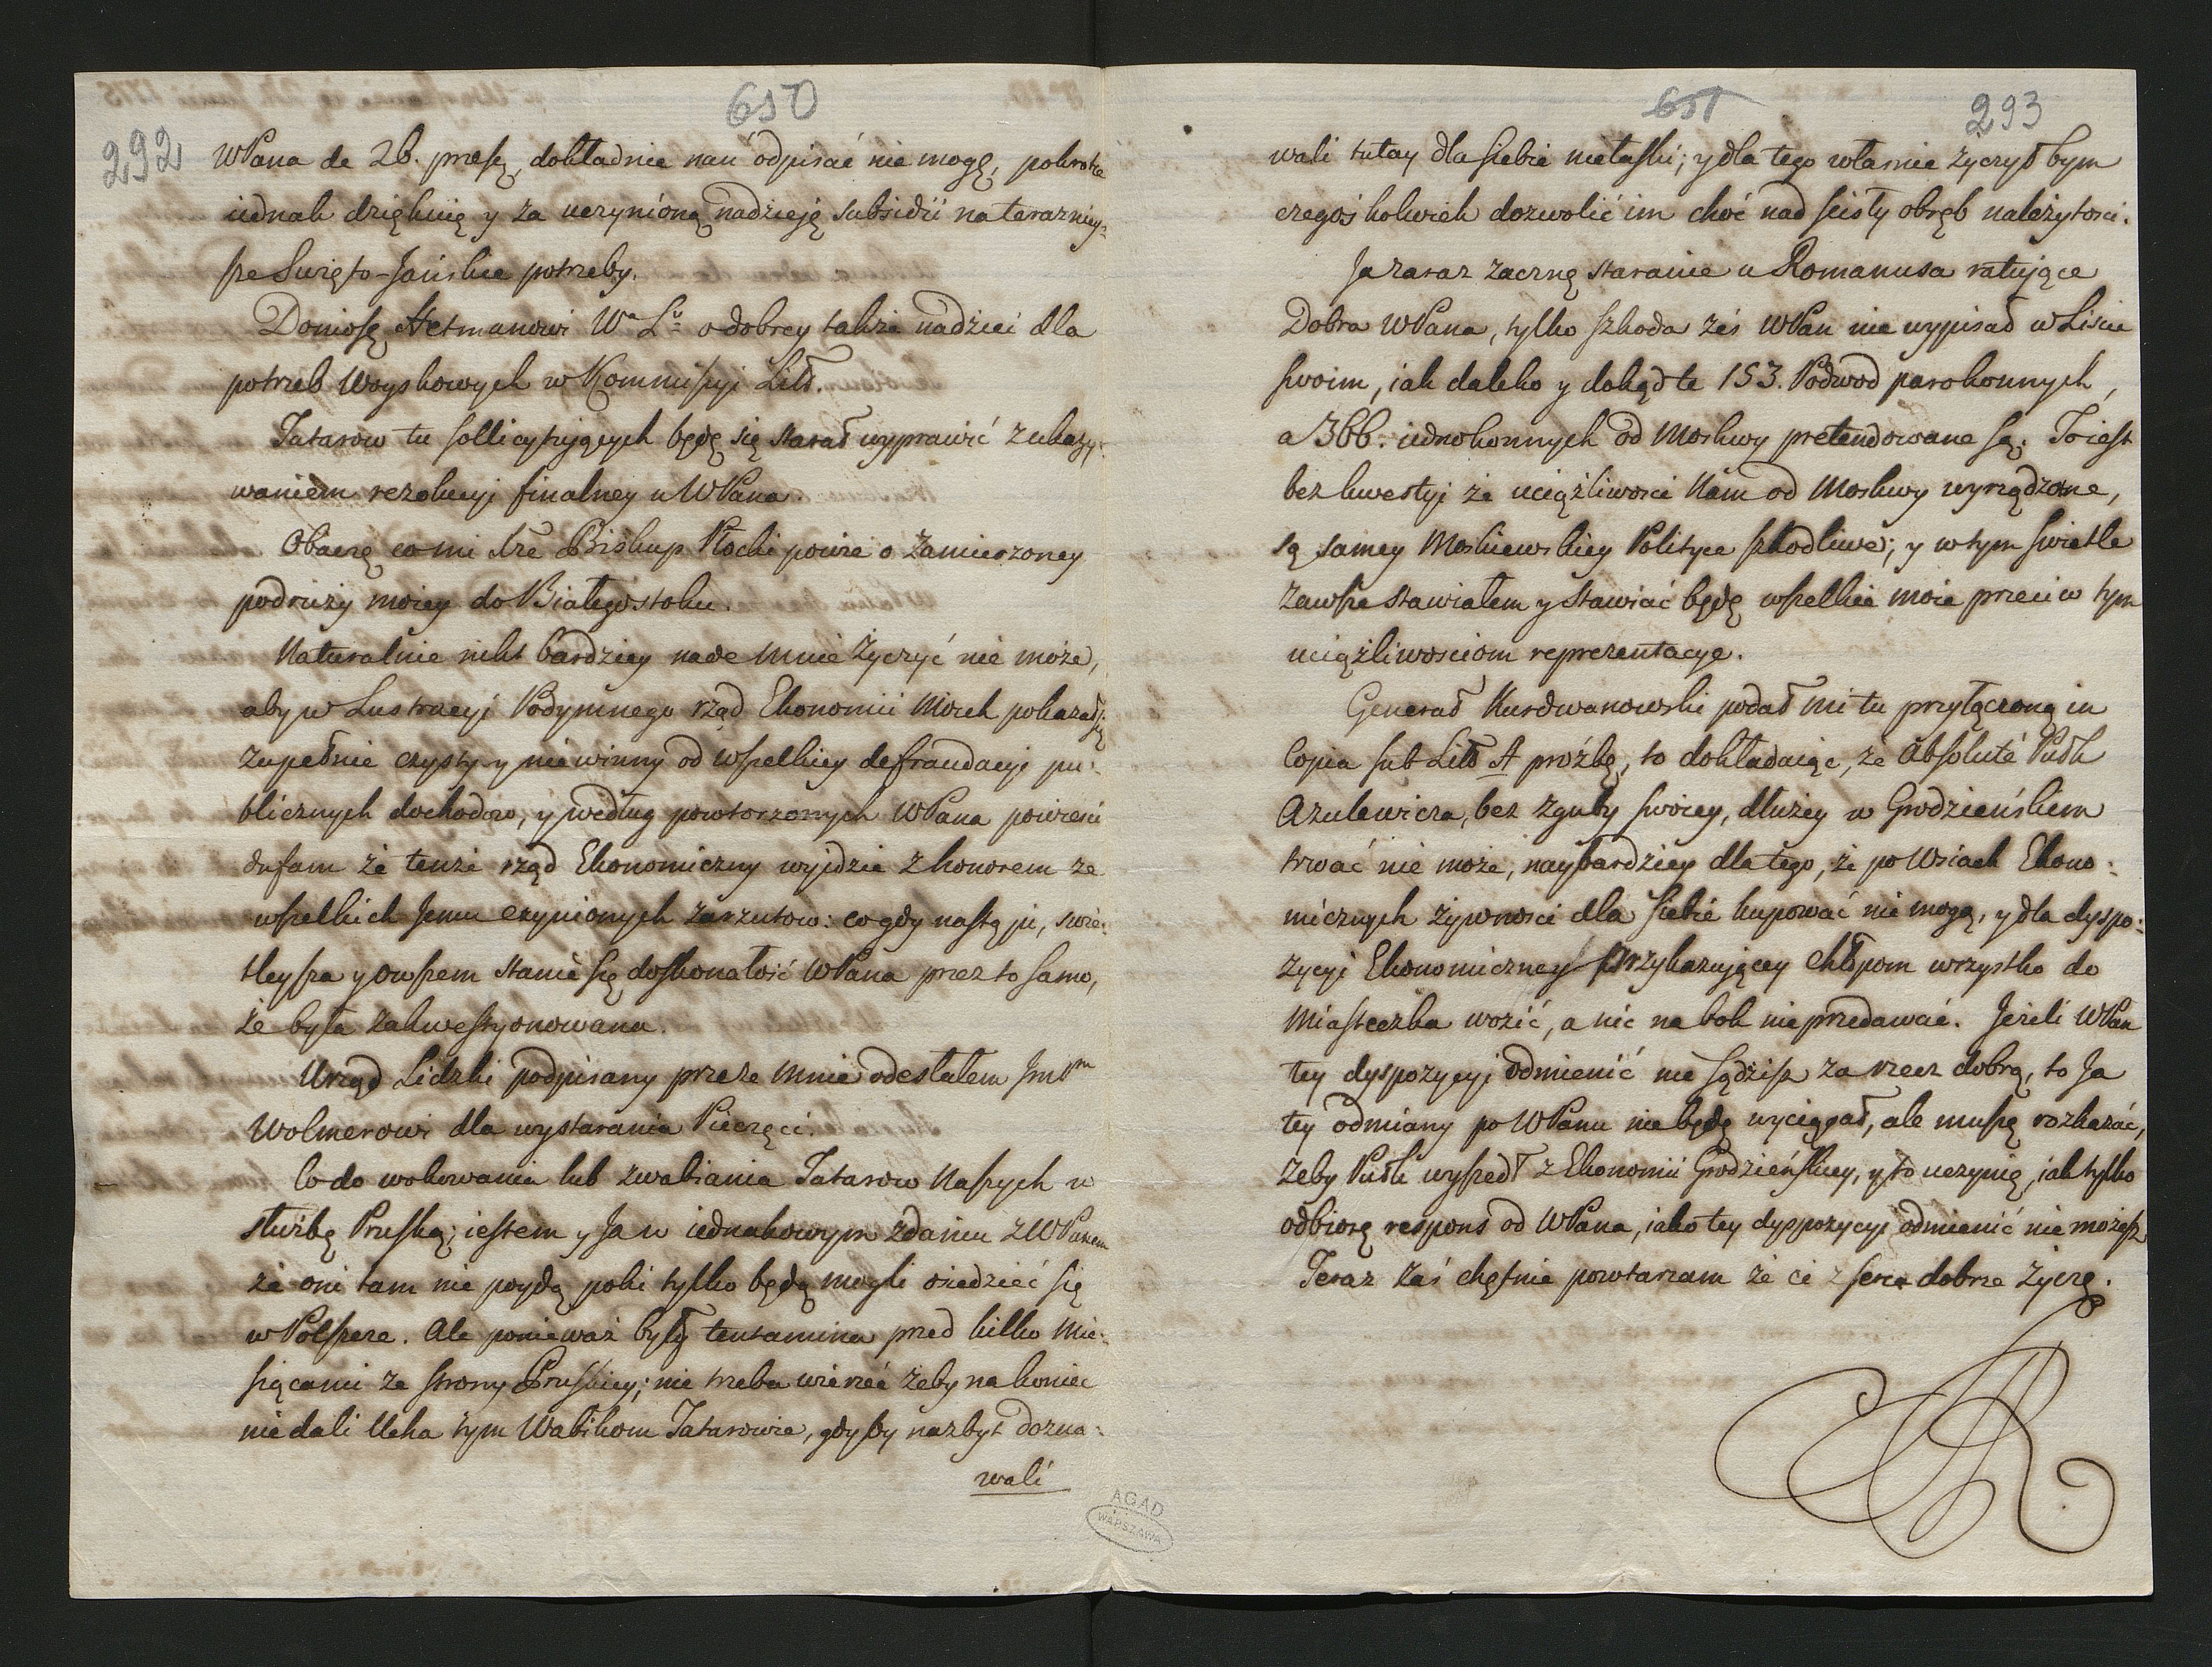 650
292
WPana de 26. praesę, dokładnie nań odpisać nie mogę, pokrotce
iednak dziękuię y za uczynioną nadzieię subsidii na terazniey=
sze Swięto-Jańskie potrzeby.
Doniosę Hetmanowi W<sup>u</sup> L<sup>u</sup> o dobrey także nadziei dla
potrzeb Woyskowych w Kommissyi Litt.
Tatarow tu sollicytujących będę się starał wyprawić z ukazy=
waniem rezolucyi finalney u WPana.
Obaczę co mi Xże Biskup Płocki powie o zamierzoney
podruży moiey do Białegostoku.
Naturalnie nikt bardziey nade mnie życzyć nie może,
aby w Lustracyi Podymnego rząd Ekonomii Moich pokazał się
zupełnie czysty y niewinny od wszelkiey defraudacyi pu=
blicznych dochodow, y według powtorzonych WPana powieści
dufam że tenże rząd Ekonomiczny wyidzie z honorem ze
wszelkich Jemu czynionych zarzutow: co gdy nastąpi, swie=
tleysza y owszem stanie się doskonałość WPana przez to samo,
że była zakwestyonowana.
Urząd Lidzki podpisany przeze mnie odesłałem JmP<sup>nu</sup>
Wolmerowi dla wystarania Pieczęci.
Co do wokowania lub zwabiania Tatarow Naszych w
służbę Pruską; iestem y Ja w iednakowym zdaniu z WPanem
że oni tam nie poydą poki tylko będą mogli osiedzieć się
w Polszcze. Ale ponieważ były tentamina przed kilko Mie=
siącami ze strony Pruskiey; nie trzeba wierzeć żeby na koniec
nie dali Ucha tym Wabikom Tatarowie, gdyby nazbyt dozna=
wali
AGAD
WARSZAWA
651
293
wali tutay dla siebie niełaski; y dla tego własnie życzył bym
czegoś kolwiek dozwolić im choć nad scisły obręb należytosci.
Ja zaraz zacznę staranie u Romanusa ratujące
Dobra WPana, tylko szkoda żeś WPan nie wypisał w Liscie
swoim, iak daleko y dokąd te 153. Podwod parokonnych,
a 366. iednokonnych od Moskwy pretendowane są. To iest
bez kwestyi że uciążliwosci Nam od Moskwy wyrządzone,
są samey Moskiewskiey Polityce szkodliwe; y w tym swietle
zawsze stawiałem y stawiać będę wszelkie moie przeciw tym
uciążliwosciom reprezentacye.
Generał Kurdwanowski podał mi tu przyłączoną in
Copia sub Litt A prożbę, to dokładaiąc, że absoluté Pułk
Azulewicza, bez zguby swoiey, dłużey w Grodzieńskiem
trwać nie może, naybardziey dla tego, że po Wsiach Ekono=
micznych żywnosci dla siebie kupować nie mogą, y dla dyspo=
zycyi Ekonomiczney przykazującey chłopom wszystko do
Miasteczka wozić, a nic na bok nie przedawać. Jeżeli WPan
tey dyspozycyi odmienić nie sądzisz za rzecz dobrą, to Ja
tey odmiany po WPanu nie będę wyciągał, ale muszę rozkazać,
żeby Pułk wyszedł z Ekonomii Grodzieńskiey, y to uczynię, iak tylko
odbiorę respons od WPana, iako tey dyspozycyi odmienić nie możesz
Teraz zaś chętnie powtarzam że ci z serca dobrze życzę.
SAR